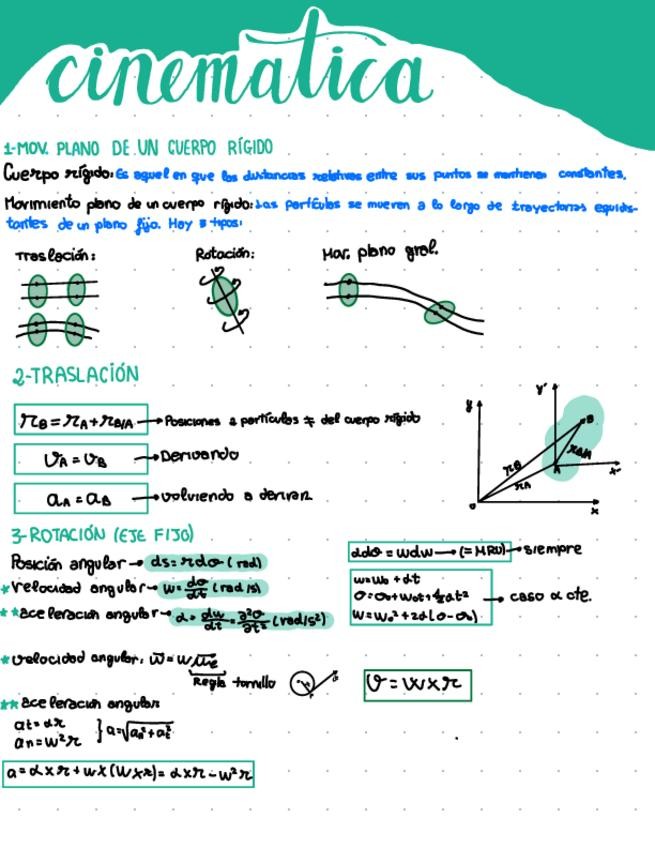 cinematica
1-MOV. PLANO DE UN CUERPO RÍGIDO
Cuerpo rígido: Es aquel en que las distancias relativas entre sus puntos se mantienen constantes.
Movimiento plano de un cuerpo rígido: Las partículas se mueven a lo largo de trayectorias equidis-
tantes de un plano fijo. Hay 3 tipos:
Traslación:
Rotación:
Mov. plano gral.
2-TRASLACIÓN
r_B = r_A + r_B/A → Posiciones 2 partículas ≠ del cuerpo rígido
v_A = v_B → Derivando
a_A = a_B → volviendo a derivar
y
y'
B
r_B
r_B/A
r_A
A
x'
o
x
3-ROTACIÓN (EJE FIJO)
Posición angular → ds = r dθ (rad)
*velocidad angular → w = dθ/dt (rad/s)
**aceleración angular → α = dw/dt = ∂²θ/∂t² (rad/s²)
αdθ = wdw → (= MRU) → siempre
w = w₀ + αt
θ = θ₀ + w₀t + ½αt² → caso α cte.
w = w₀² + 2α(θ - θ₀)
*velocidad angular: w̄ = w ū_e
Regla tornillo
v = w x r
**aceleración angular:
at = αr
an = w²r } a = √(a_n² + a_t²)
a = α x r + w x (w x r) = α x r - w²r